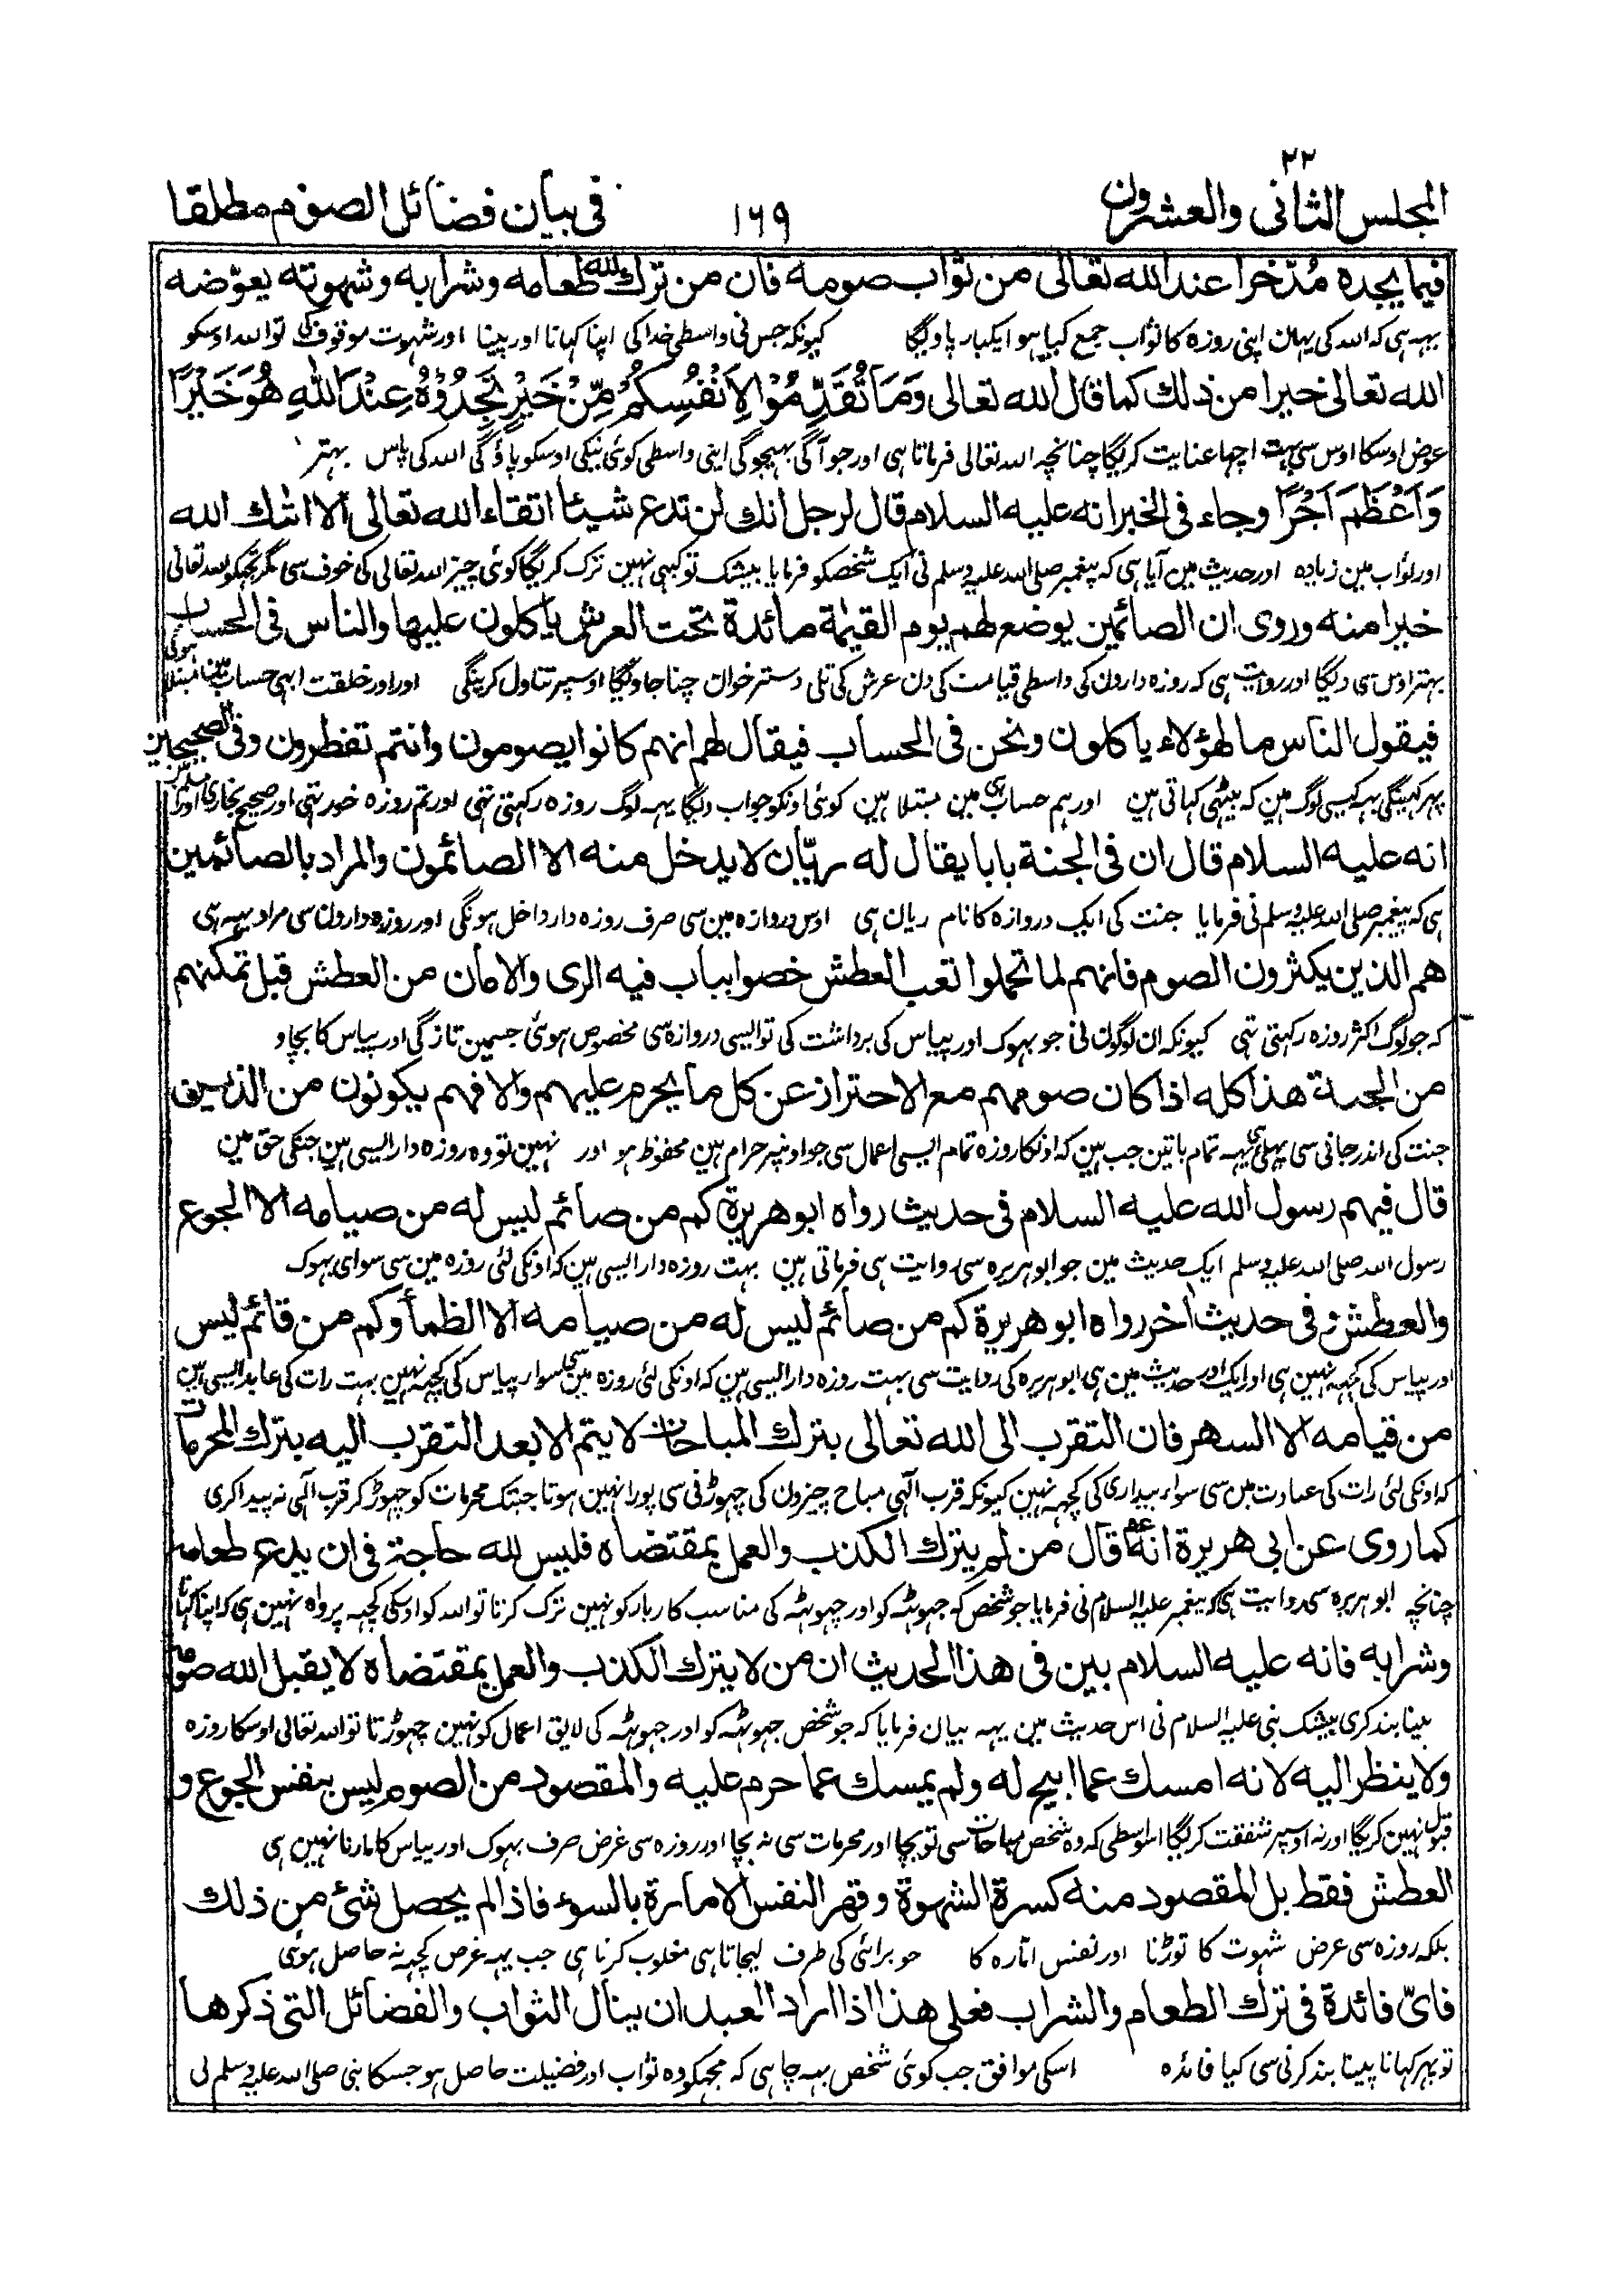 ٢٢
المجلس الثانى والعشرون ١٦٩ فى بيان فضائل الصوم مطلقا
فيما يجده مُدّخرا عند الله تعالى من ثواب صومه فان من ترك لله طعامه وشرابه وشهوته يعوّضه
یہہ ہی کہ اللہ کی یہان اپنی روزہ کا ثواب جمع کیا ہوا یکبار پاویگا کیونکہ جس نی واسطی خدا کی اپنا کہانا اور پینا اور شہوت موقوف کی تو اللہ اوسکو
الله تعالى خيرا من ذلك كما قال الله تعالى وَمَا تُقَدِّمُوْا لِاَنْفُسِكُمْ مِّنْ خَيْرٍ تَجِدُوْهُ عِنْدَ اللّٰهِ هُوَ خَيْرًا
عوض اوسکا اوس سی بہت اچہا عنایت کریگا چنانچہ اللہ تعالی فرماتا ہی اور جو آگی بہیجوگی اپنی واسطی کوئی نیکی اوسکو پاؤگی اللہ کی پاس بہتر
وَاَعْظَمَ اَجْرًا وجاء فى الخبر انه عليه السلام قال لرجل انك لن تدع شيئا اتقاء الله تعالى الا اتٰك الله
اور ثواب مین زیادہ اور حدیث مین آیا ہی کہ پیغمبر صلی اللہ علیہ وسلم نی ایک شخصکو فرمایا بیشک تو کبہی نہین ترک کریگا کوئی چیز اللہ تعالی کی خوف سی مگر تجہکو اللہ تعالی
خيرا منه وروى ان الصائمين يوضع لهم يوم القيمٰة مائدة تحت العرش ياكلون عليها والناس فى الحساب
بہتر اوس سی دیگا اور روایت ہی کہ روزہ دارون کی واسطی قیامت کی دن عرش کی تلی دسترخوان چنا جاویگا اوسپر تناول کرینگی اور اور خلقت ابہی حساب مین مبتلا ہوگی
فيقول الناس ما لهؤلاء ياكلون ونحن فى الحساب فيقال لهم انهم كانوا يصومون وانتم تفطرون وفى الصحيحين
پہر کہینگی یہہ کیسی لوگ ہین کہ بیٹہی کہاتی ہین اور ہم حساب ہی مین مبتلا ہین کوئی اونکو جواب دیگا یہہ لوگ روزہ رکہتی تہی اور تم روزہ خور تہی اور صحیح بخاری اور مسلم مین
انه عليه السلام قال ان فى الجنة بابا يقال له ريّان لا يدخل منه الا الصائمون والمراد بالصائمين
ہی کہ پیغمبر صلی اللہ علیہ وسلم نی فرمایا جنت کی ایک دروازہ کا نام ریان ہی اوس دروازہ مین سی صرف روزہ دار داخل ہونگی اور روزہ دارون سی مراد یہہ ہی
هم الذين يكثرون الصوم فانهم لما تحملوا تعب العطش خصوا بباب فيه الرى والامان من العطش قبل تمكنهم
کہ جو لوگ اکثر روزہ رکہتی تہی کیونکہ ان لوگون نی جو بہوک اور پیاس کی برداشت کی تو ایسی دروازہ سی مخصوص ہوئی جسمین تازگی اور پیاس کا بچاو
من الجنة هذا كله اذا كان صومهم مع الاحتراز عن كل ما يحرم عليهم والا فهم يكونون من الذين
جنت کی اندر جانی سی پہلی ہی یہہ تمام باتین جب ہین کہ اونکا روزہ تمام ایسی اعمال سی جو اونپر حرام ہین محفوظ ہو اور نہین تو وہ روزہ دار ایسی ہین جنکی حق مین
قال فيهم رسول الله عليه السلام فى حديث رواه ابو هريرة كم من صائم ليس له من صيامه الا الجوع
رسول اللہ صلی اللہ علیہ وسلم ایک حدیث مین جو ابو ہریرہ سی روایت ہی فرماتی ہین بہت روزہ دار ایسی ہین کہ اونکی لئی روزہ مین سی سوای بہوک
والعطش وفى حديث اخر رواه ابو هريرة كم من صائم ليس له من صيامه الا الظمأ وكم من قائم ليس
اور پیاس کی کچہہ نہین ہی اور ایک اور حدیث مین ہی ابو ہریرہ کی روایت سی بہت روزہ دار ایسی ہین کہ اونکی لئی روزہ مین سی سوار پیاس کی کچہہ نہین بہت رات کی عابد ایسی ہین
من قيامه الا السهر فان التقرب الى الله تعالى بترك المباحات لا يتم الا بعد التقرب اليه بترك المحرمات
کہ اونکی لئی رات کی عبادت مین سی سواء بیداری کی کچہہ نہین کیونکہ قرب آلہی مباح چیزون کی چہوڑنی سی پورا نہین ہوتا جبتک محرمات کو چہوڑ کر قرب آلہی نہ پیدا کری
كما روى عن ابى هريرة انه عم قال من لم يترك الكذب والعمل بمقتضاه فليس لله حاجة فى ان يدع طعامه
چنانچہ ابو ہریرہ سی روایت ہی کہ پیغمبر علیہ السلام نی فرمایا جو شخص کہ جہوٹہہ کو اور جہوٹہہ کی مناسب کاربار کو نہین ترک کرتا تو اللہ کو اوسکی کچہہ پرواہ نہین ہی کہ اپنا کہانا
وشرابه فانه عليه السلام بين فى هذا الحديث ان من لا يترك الكذب والعمل بمقتضاه لا يقبل الله صومه
پینا بند کری بیشک نبی علیہ السلام نی اس حدیث مین یہہ بیان فرمایا کہ جو شخص جہوٹہہ کو اور جہوٹہہ کی لایق اعمال کو نہین چہوڑتا تو اللہ تعالی اوسکا روزہ
ولا ينظر اليه لانه امسك عما ابيح له ولم يمسك عما حرم عليه والمقصود من الصوم ليس بنفس الجوع و
قبول نہین کریگا اور نہ اوسپر شفقت کریگا اسواسطی کہ وہ شخص مباحات سی تو بچا اور محرمات سی نہ بچا اور روزہ سی غرض صرف بہوک اور پیاس کا مارنا نہین ہی
العطش فقط بل المقصود منه كسرة الشهوة وقهر النفس الامارة بالسوء فاذا لم يحصل شئ من ذلك
بلکہ روزہ سی غرض شہوت کا توڑنا اور نفس امّارہ کا جو برائی کی طرف لیجاتا ہی مغلوب کرنا ہی جب یہہ غرض کچہہ نہ حاصل ہوئی
فاىّ فائدة فى ترك الطعام والشراب فعلى هذا اذا اراد العبد ان ينال الثواب والفضائل التى ذكرها
تو پہر کہانا پینا بند کرنی سی کیا فائدہ اسکی موافق جب کوئی شخص یہہ چاہی کہ مجہکو وہ ثواب اور فضیلت حاصل ہو جسکا نبی صلی اللہ علیہ وسلم نی